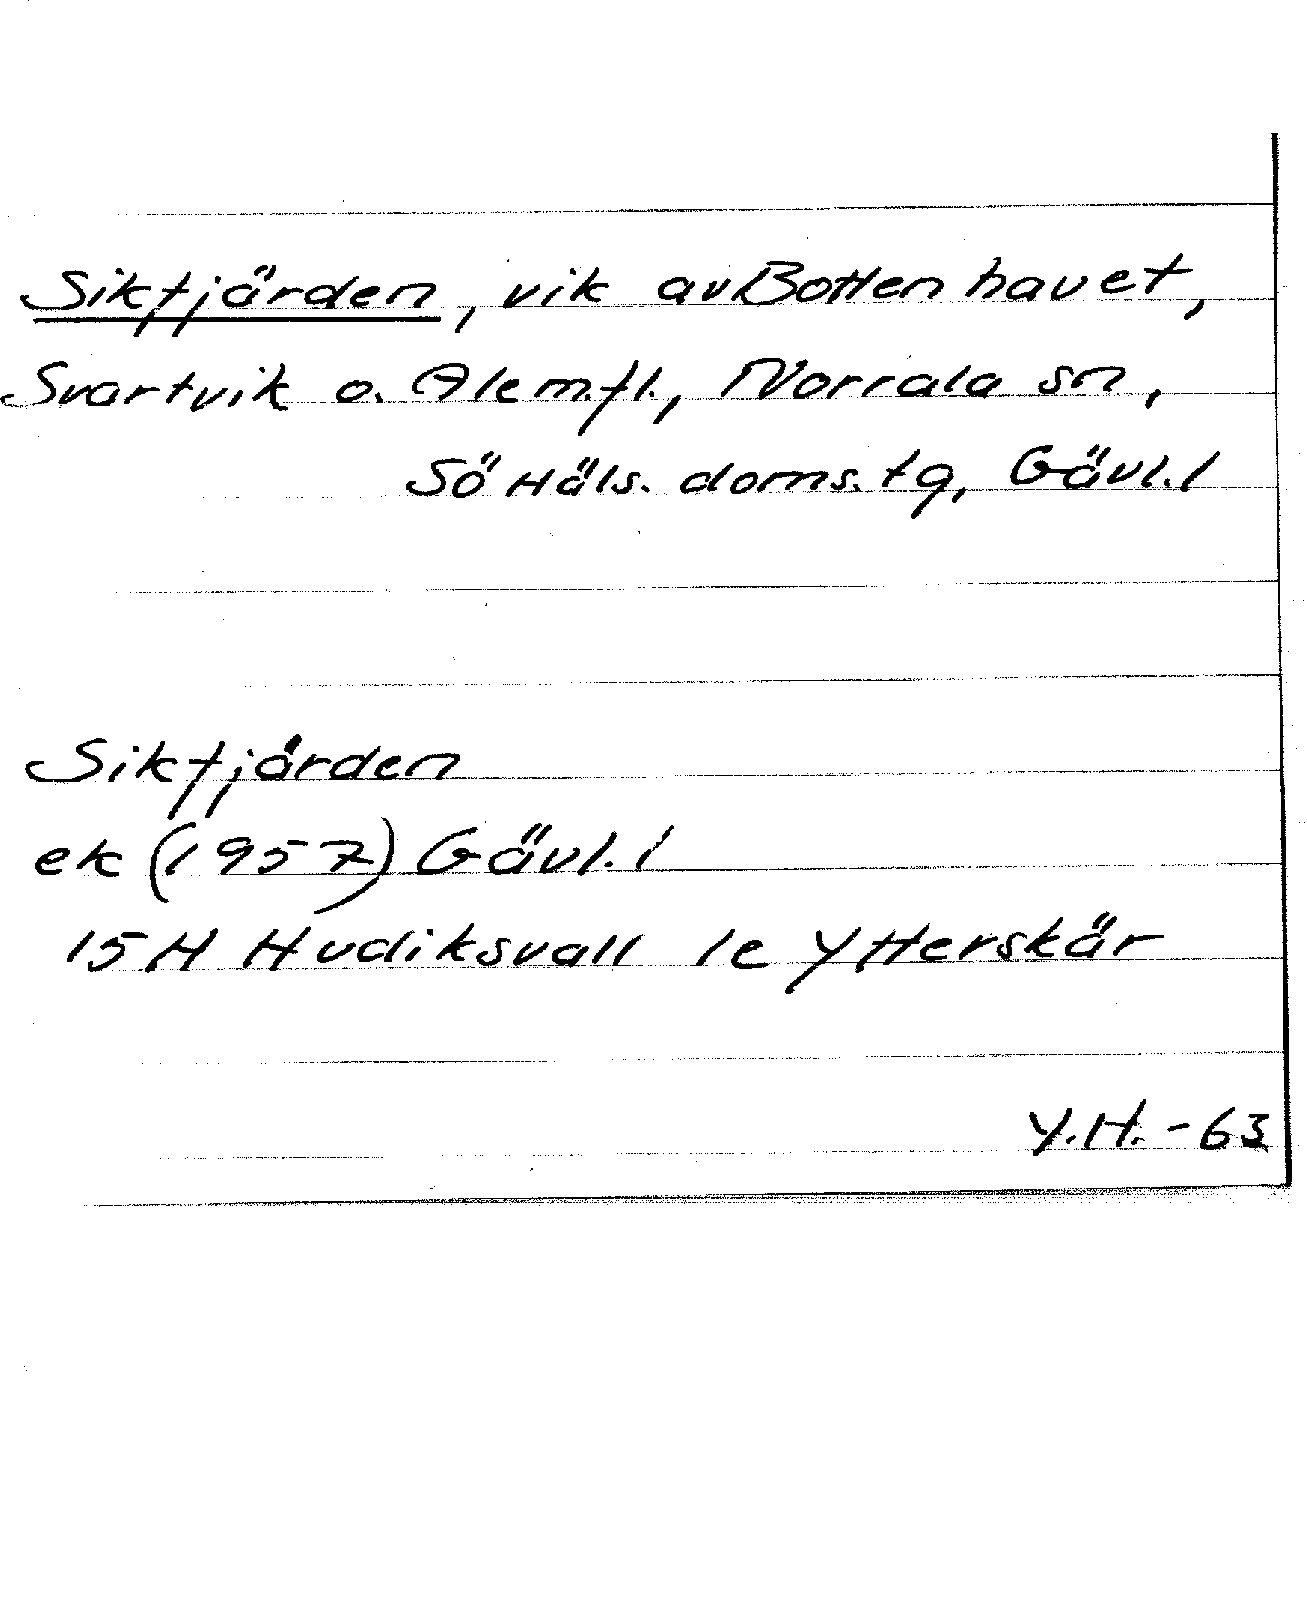 Sikfjärden, vik av Bottenhavet,
Svartvik o. Ale m.fl., Norrala sn,
Sö Häls. doms. tg, Gävl. l
Sikfjärden
ek (1957) Gävl. l
15H Hudiksvall 1e Ytterskär
Y.H. -63